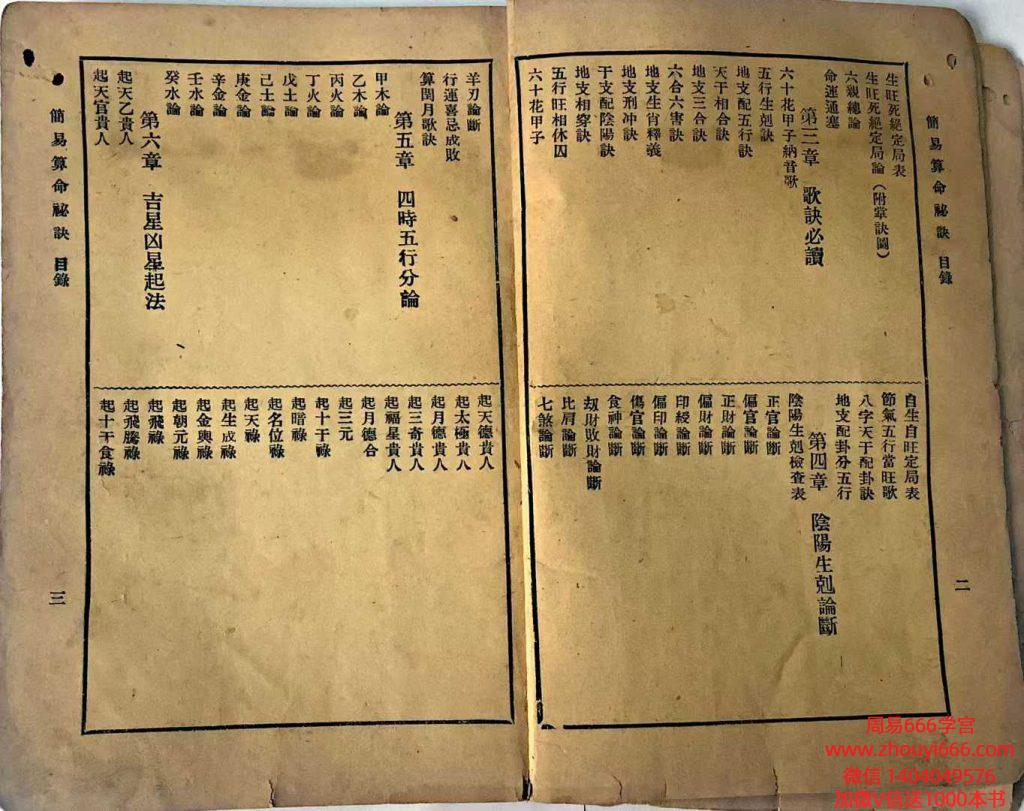 簡易算命祕訣 目錄
二
生旺死絕定局表
生旺死絕定局論(附掌訣圖)
六親總論
命運通塞
第三章 歌訣必讀
六十花甲子納音歌
五行生剋訣
地支配五行訣
天干相合訣
地支三合訣
六合六害訣
地支生肖釋義
地支刑冲訣
干支配陰陽訣
地支相穿訣
五行旺相休囚
六十花甲子
自生自旺定局表
節氣五行當旺歌
八字天干配卦訣
地支配卦分五行
第四章 陰陽生剋論斷
陰陽生剋檢查表
正官論斷
偏官論斷
正財論斷
偏財論斷
印綬論斷
偏印論斷
傷官論斷
食神論斷
刼財敗財論斷
比肩論斷
七煞論斷
羊刃論斷
行運喜忌成敗
算閏月歌訣
第五章 四時五行分論
甲木論
乙木論
丙火論
丁火論
戊土論
己土論
庚金論
辛金論
壬水論
癸水論
第六章 吉星凶星起法
起天乙貴人
起天官貴人
起天德貴人
起太極貴人
起月德貴人
起三奇貴人
起福星貴人
起月德合
起三元
起十干祿
起暗祿
起名位祿
起天祿
起生成祿
起金輿祿
起朝元祿
起飛祿
起飛騰祿
起十干食祿
簡易算命祕訣 目錄
三
周易666学宫
www.zhouyi666.com
微信 1404049576
加微V信送1000本书